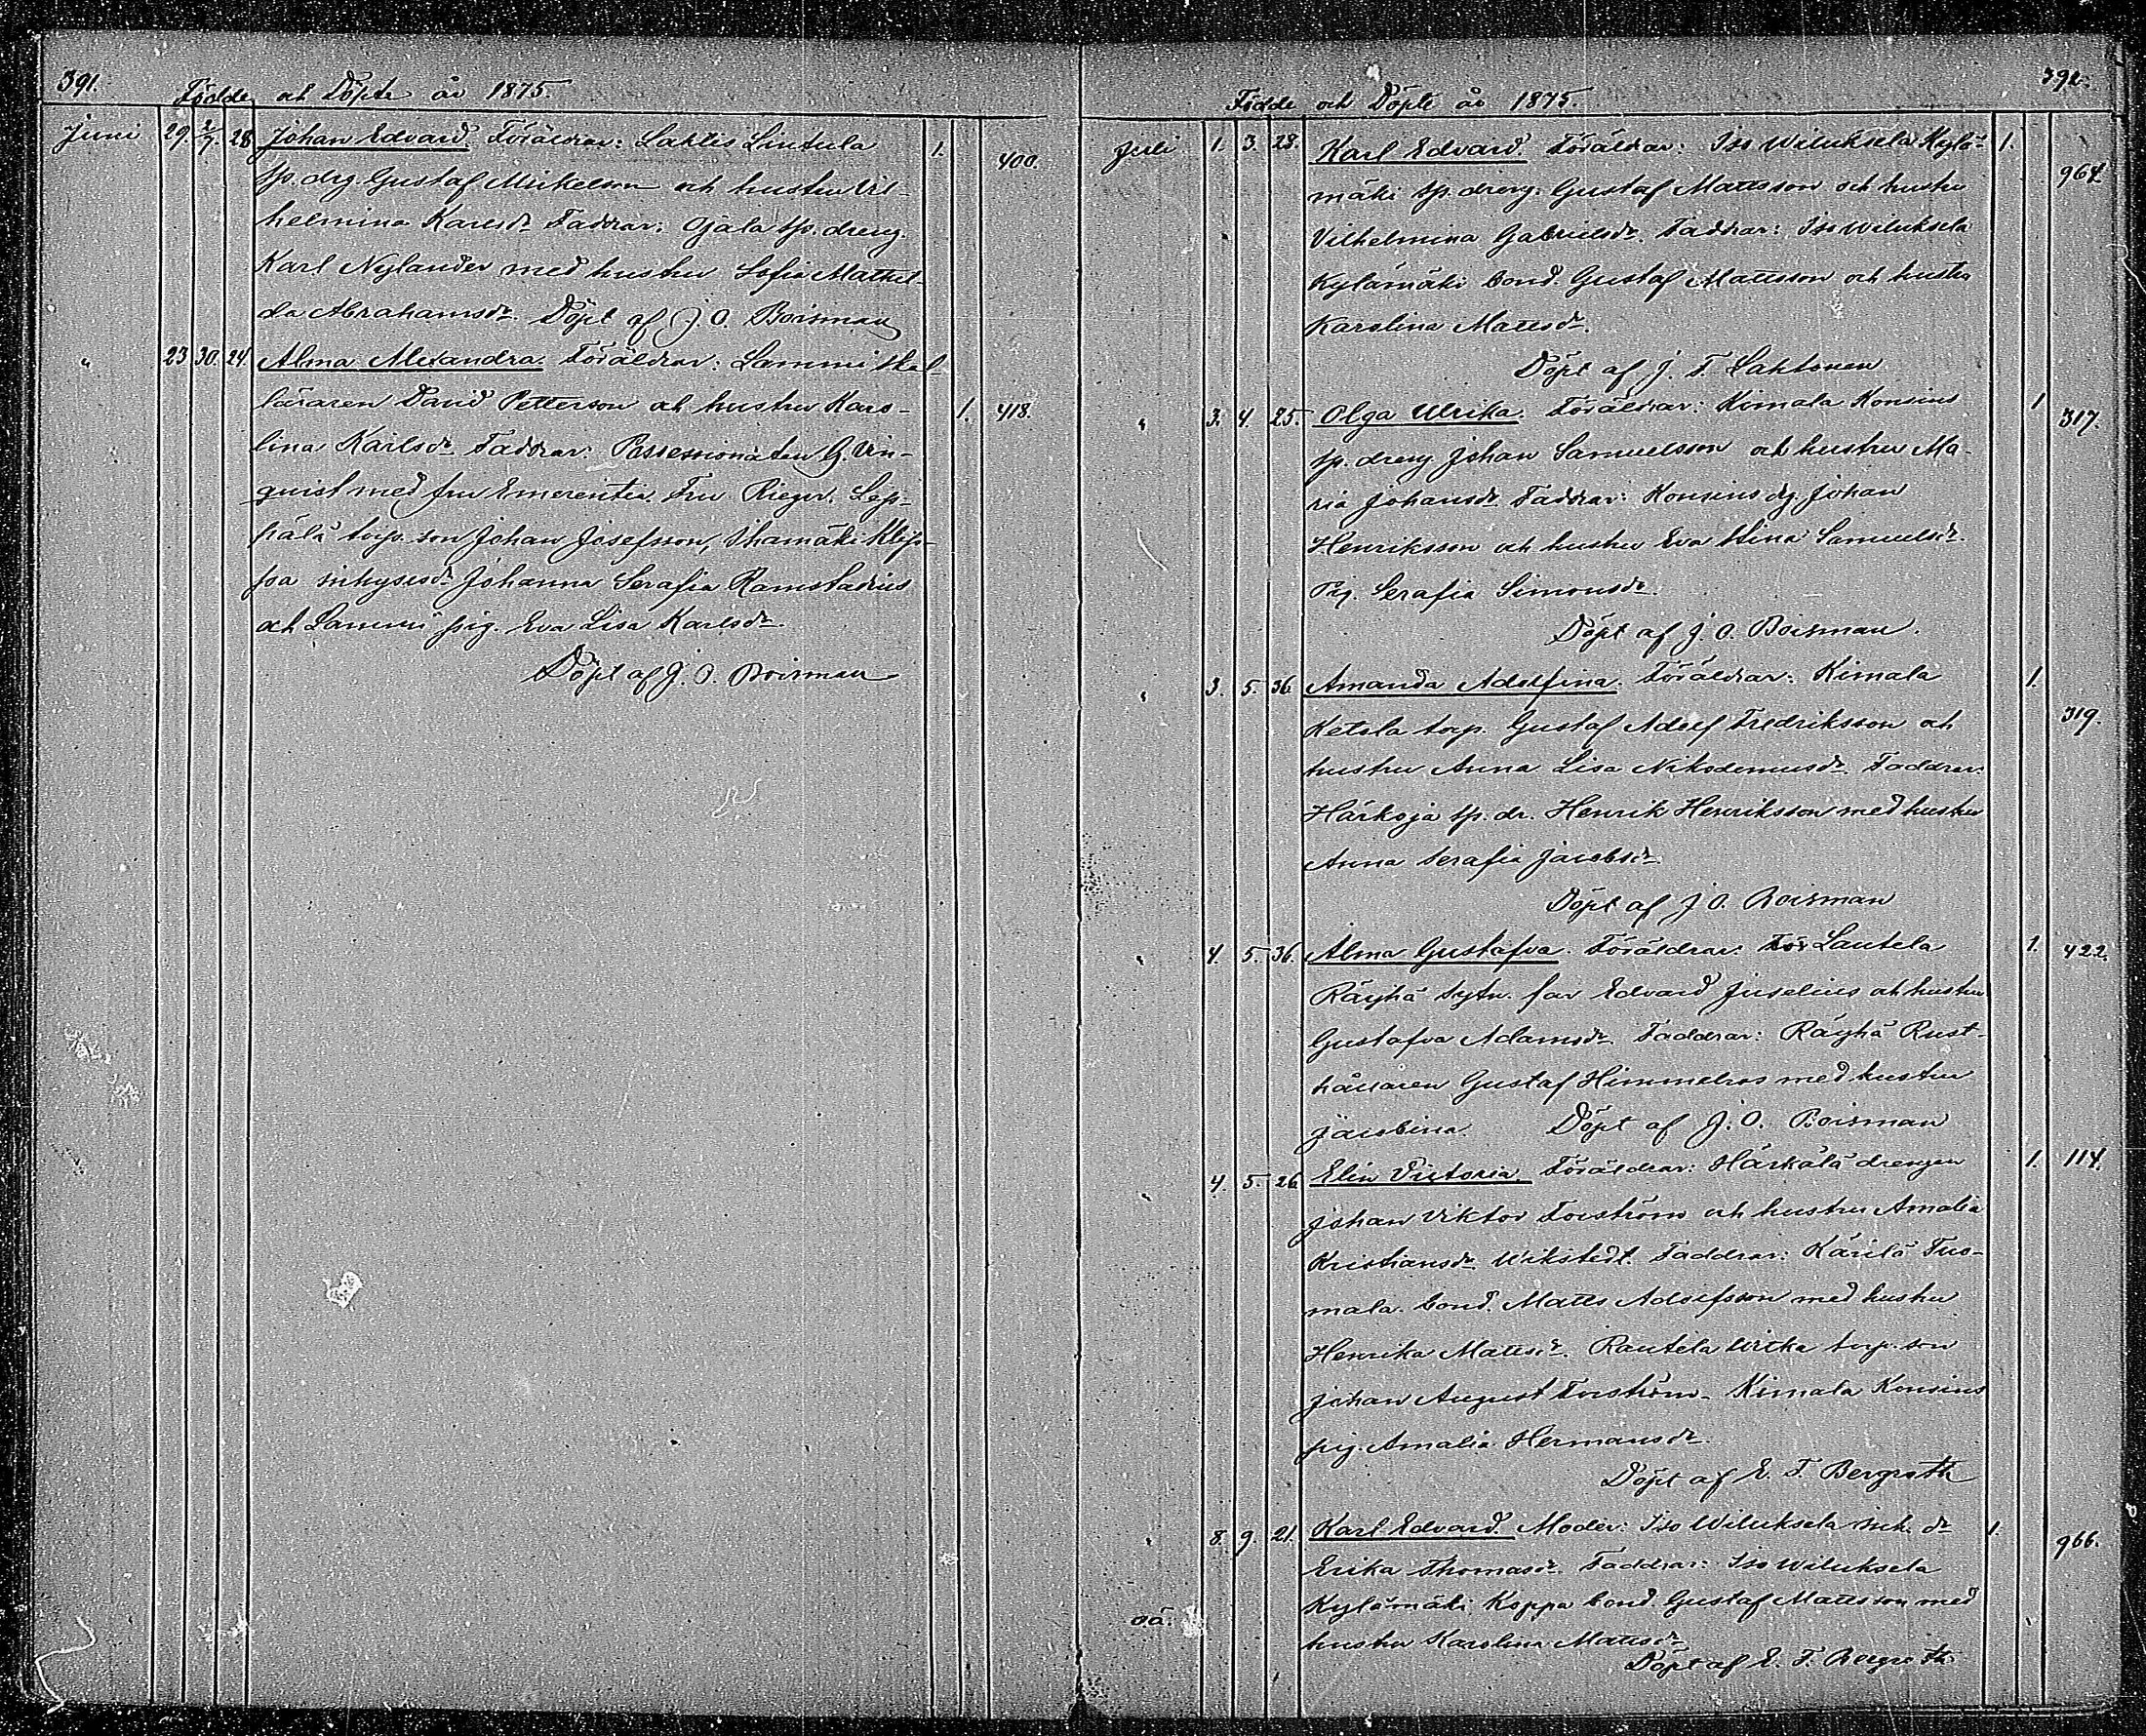 391.
Födde och Döpte år 1875.
Juni 29. 2/7. 28 Johan Edvard. Föräldrar: Lahtis Lintula 1. 400.
sp. drg. Gustaf Mickelson och hustru Vil-
helmina Karlsdr. Faddrar: Ojala sp. dreng.
Karl Nylander med hustru Sofia Mathil-
da Abrahamsdr. Döpt af J. O. Boisman
" 23 30. 24. Alma Alexandra. Föräldrar: Lammi skol-
läraren David Petterson och hustru Karo- 1. 418.
lina Karlsdr. Faddrar: Possessionaten G. Vin-
quist med fru Emerentia. Fru Rieger. Lep-
pälä torp. son Johan Josefsson, Ihamäki Klip-
poa inhysesdr. Johanna Serafia Ramstadius
och Lammi pig. Eva Lisa Karlsdr.
Döpt af J. O. Boisman
392.
Födde och Döpte år 1875.
Juli 1. 3. 28. Karl Edvard. Föräldrar: Iso Wiluksela Kylä- 1. 964.
mäki sp. dreng. Gustaf Mattsson och hustru
Vilhelmina Gabrielsdr. Faddrar: Iso Wiluksela
Kylämäki bond. Gustaf Mattsson och hustru
Karolina Mattsdr.
Döpt af J. F. Lahtonen
" 3. 4. 25. Olga Ulrika. Föräldrar: Kimala Konsius 1 317.
sp. dreng Johan Samuelsson och hustru Ma-
ria Johansdr. Faddrar: Konsius dg. Johan
Henriksson och hustru Eva Stina Samuelsdr.
Pig. Serafia Simonsdr.
Döpt af J. O. Boisman.
" 3. 5. 36 Amanda Adolfina. Föräldrar: Kimala 1. 319.
Ketola torp. Gustaf Adolf Fredriksson och
hustru Anna Lisa Nikodemusdr. Faddrar:
Härkoja sp. dr. Henrik Henriksson med hustru
Anna Serafia Jacobsdr.
Döpt af J. O. Boisman
" 4. 5. 36. Alma Gustafva. Föräldrar: Lautela 1. 422.
Räyhä sytn. far Edvard Juselius och hustru
Gustafva Adamsdr. Faddrar: Räyhä Rust-
hållaren Gustaf Himmelros med hustru
Jacobina. Döpt af J. O. Boisman
" 4. 5. 26 Elin Victoria. Föräldrar: Härkälä drengen 1. 114.
Johan Viktor Forström och hustru Amalia
Kristiansdr. Wikstedt. Faddrar: Kärilä Tuo-
mala bond. Matts Adolfsson med hustru
Henrika Mattsdr. Rautela torp. son
Johan August Forström. Kimala Konsius
pig. Amalia Hermansdr.
Döpt af E. F. Bergroth
" 8. 9. 21. Karl Edvard. Moder: Iso Wiluksela inh. dr. 1. 966.
Erika Thomasdr. Faddrar: Iso Wiluksela
Kylämäki Koppa bond. Gustaf Mattsson med
oä. hustru Karolina Mattsdr.
Döpt af E. F. Bergroth